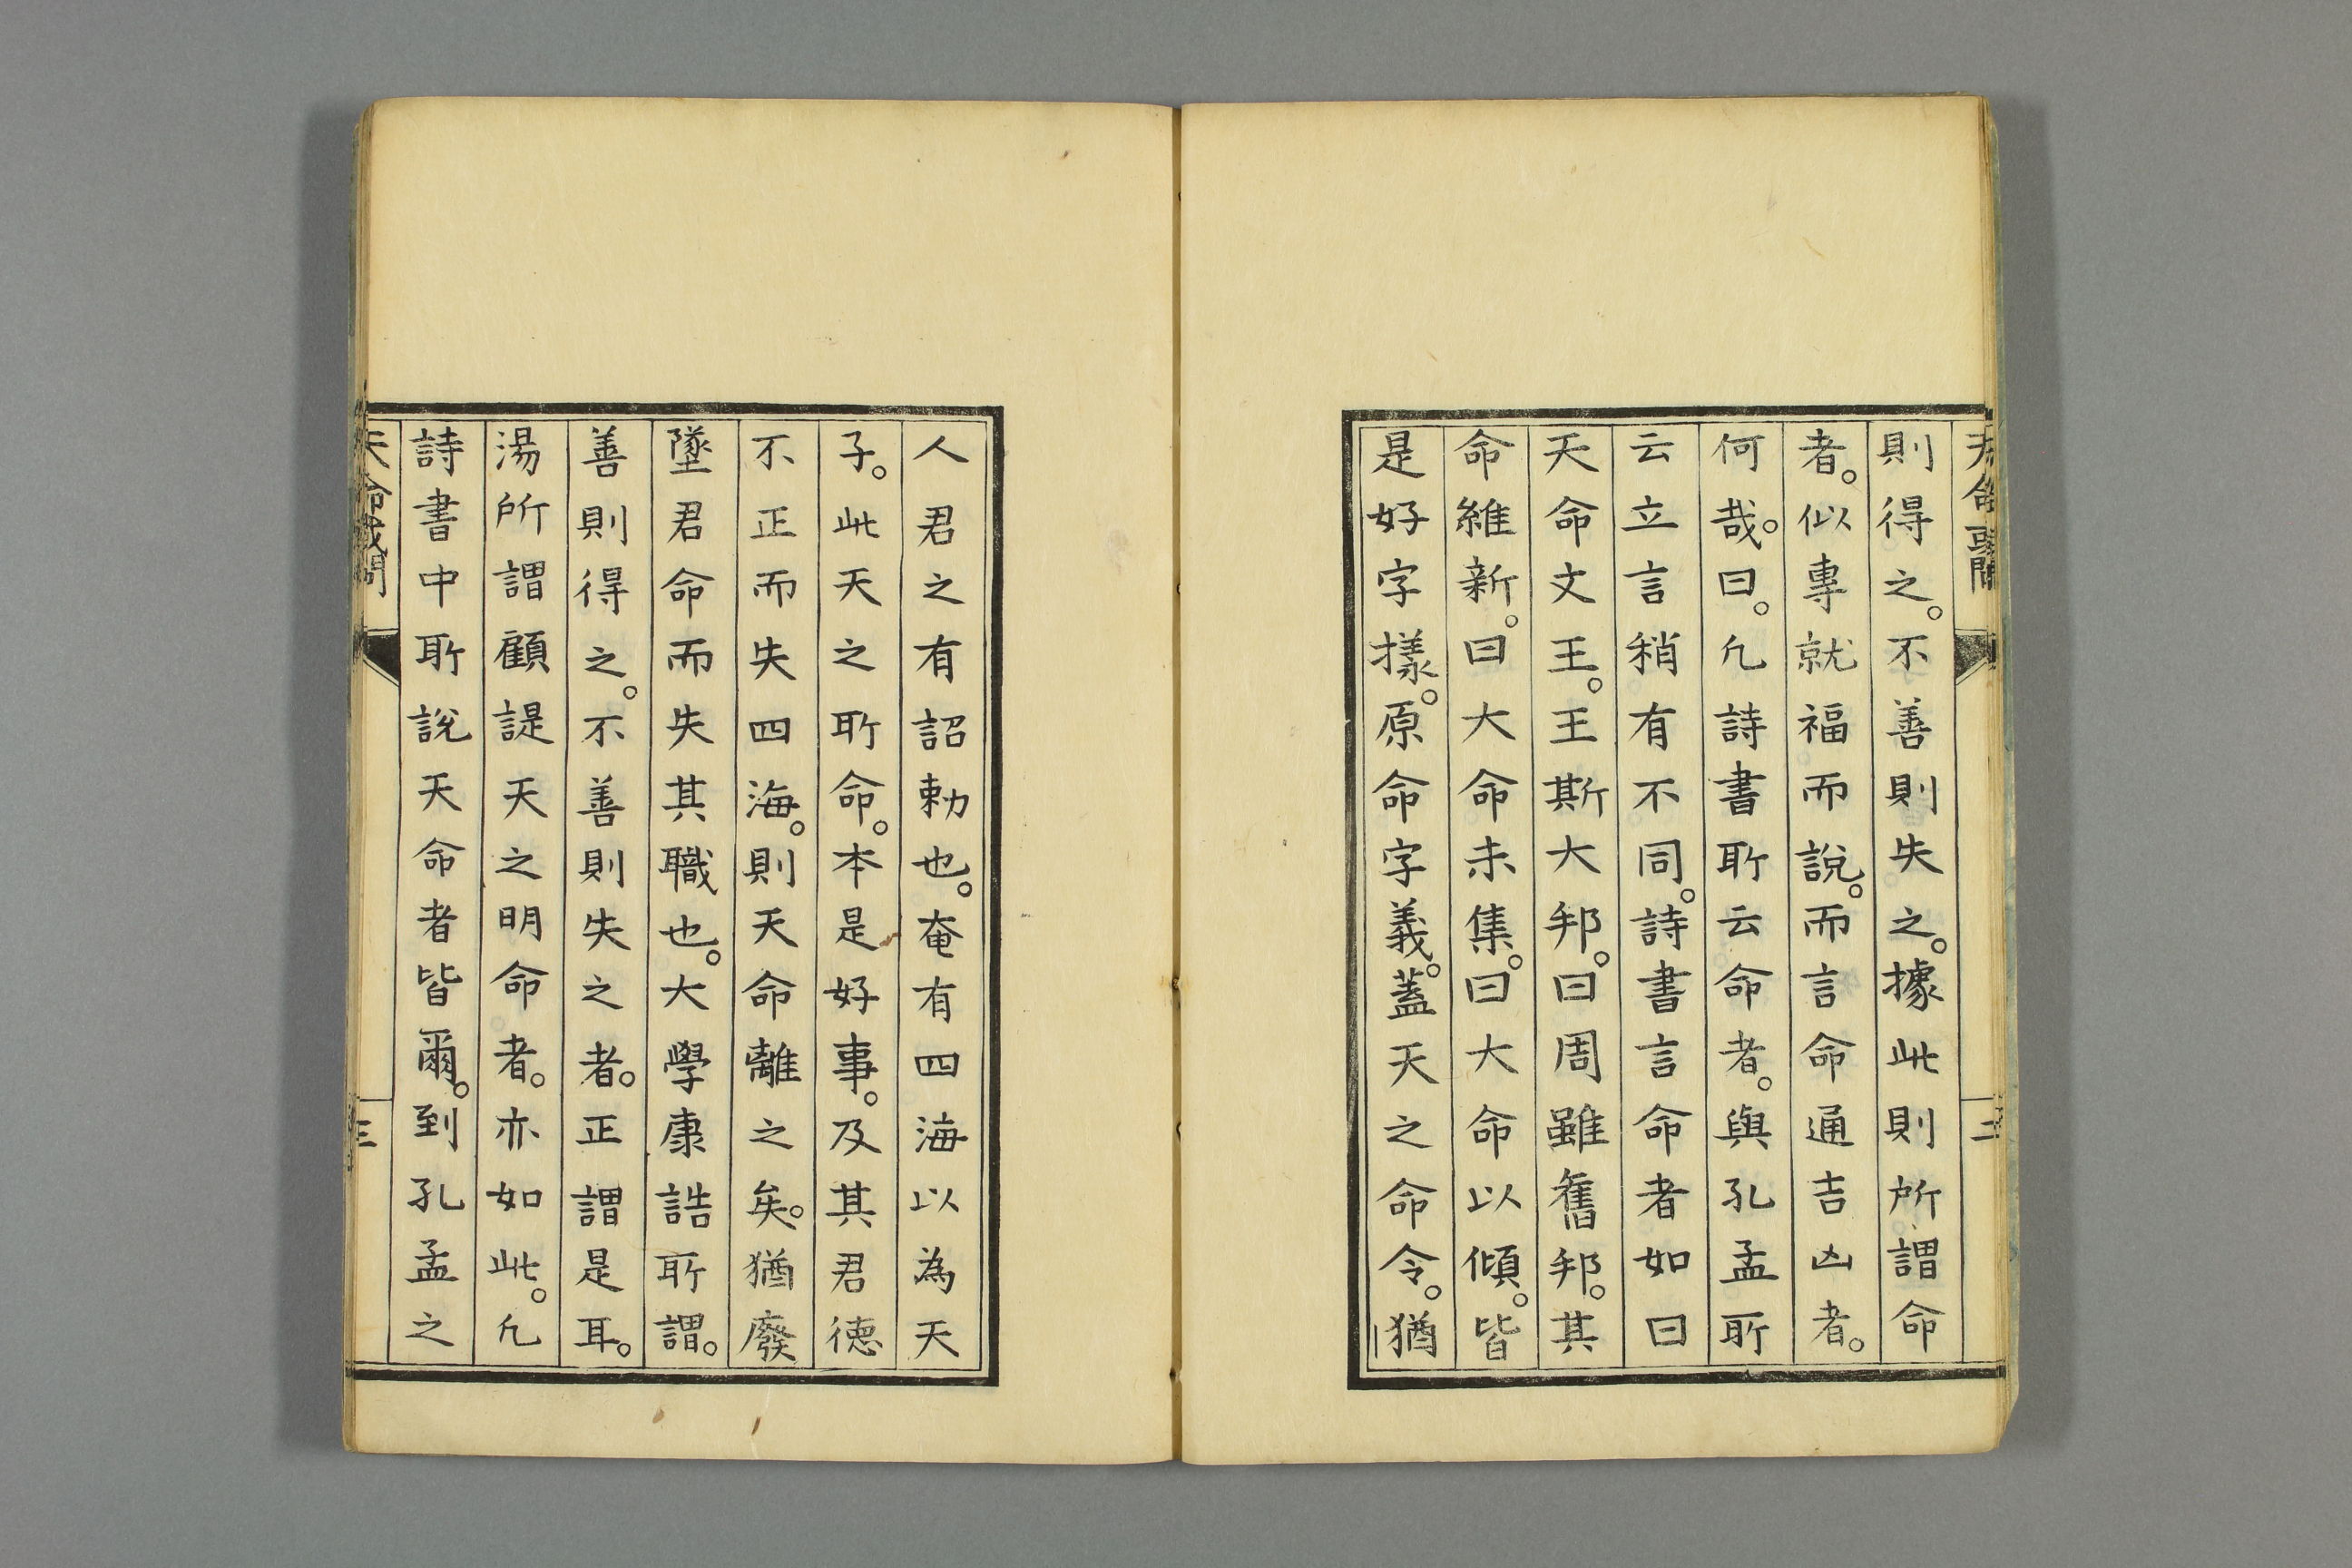 天命或問
二
則得之。不善則失之。據此則所謂命
者。似專就福而說。而言命通吉凶者。
何哉。曰。凡詩書所云命者。與孔孟所
云立言稍有不同。詩書言命者如曰
天命文王。王斯大邦。曰周雖舊邦。其
命維新。曰大命未集。曰大命以傾。皆
是好字樣。原命字義。蓋天之命令。猶
人君之有詔勅也。奄有四海以為天
子。此天之所命。本是好事。及其君德
不正而失四海。則天命離之矣。猶廢
墜君命而失其職也。大學康誥所謂。
善則得之。不善則失之者。正謂是耳。
湯所謂顧諟天之明命者。亦如此。凡
詩書中所說天命者皆爾。到孔孟之
天命或問
三